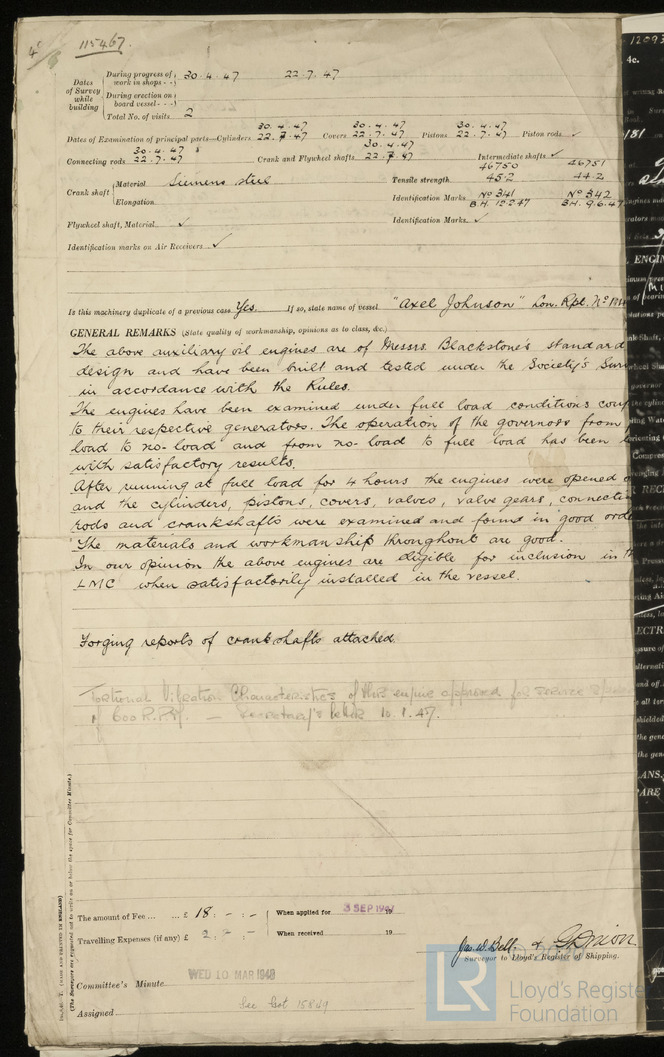 115467.
4c.
Dates of Survey while building
During progress of work in shops - - 30.4.47 22.7.47
During erection on board vessel - - -
Total No. of visits 2
30.4.47 30.4.47 30.4.47
Dates of Examination of principal parts—Cylinders 22.7.47 Covers 22.7.47 Pistons 22.7.47 Piston rods ✓
30.4.47 30.4.47
Connecting rods 22.7.47 Crank and Flywheel shafts 22.7.47 Intermediate shafts ✓
46750 46751
Crank shaft Material Siemens steel Tensile strength 45.2 44.2
Elongation Identification Marks Nº 341 Nº 342
B.H. 12.2.47 B.H. 9.6.47
Flywheel shaft, Material ✓ Identification Marks ✓
Identification marks on Air Receivers ✓
Is this machinery duplicate of a previous case Yes. If so, state name of vessel "Axel Johnson" Lon. Rpt. Nº
GENERAL REMARKS (State quality of workmanship, opinions as to class, &c.)
The above auxiliary oil engines are of Messrs. Blackstone's standard
design and have been built and tested under the Society's
in accordance with the Rules.
The engines have been examined under full load conditions
to their respective generators. The operation of the governors from
load to no-load and from no-load to full load has been
with satisfactory results.
After running at full load for 4 hours the engines were opened
and the cylinders, pistons, covers, valves, valve gears,
rods and crankshafts were examined and found in good
The materials and workmanship throughout are good.
In our opinion the above engines are eligible for inclusion in
LMC when satisfactorily installed in the vessel.
Forging reports of crankshafts attached.
Torsional Vibration Characteristics of this engine approved for service
of 600 R.P.M. — Secretary's letter 10.1.47.
(The Surveyors are requested not to write on or below the space for Committee Minute.)
(MADE AND PRINTED IN ENGLAND)
The amount of Fee ... ... £ 18 : - : - When applied for 3 SEP 1947 19
Travelling Expenses (if any) £ 2 : - : - When received 19
Jas. W. Bell. &
Surveyor to Lloyd's Register of Shipping.
Committee's Minute WED 10 MAR 1948
Assigned See Got 15849
LR Lloyd's Register Foundation